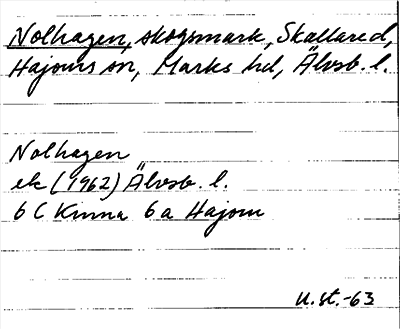 Nolhagen, skogsmark, Skällared,
Hajoms sn, Marks hd, Älvsb. l.
Nolhagen
ek (1962) Älvsb. l.
6 C Kinna 6 a Hajom
U.st.-63